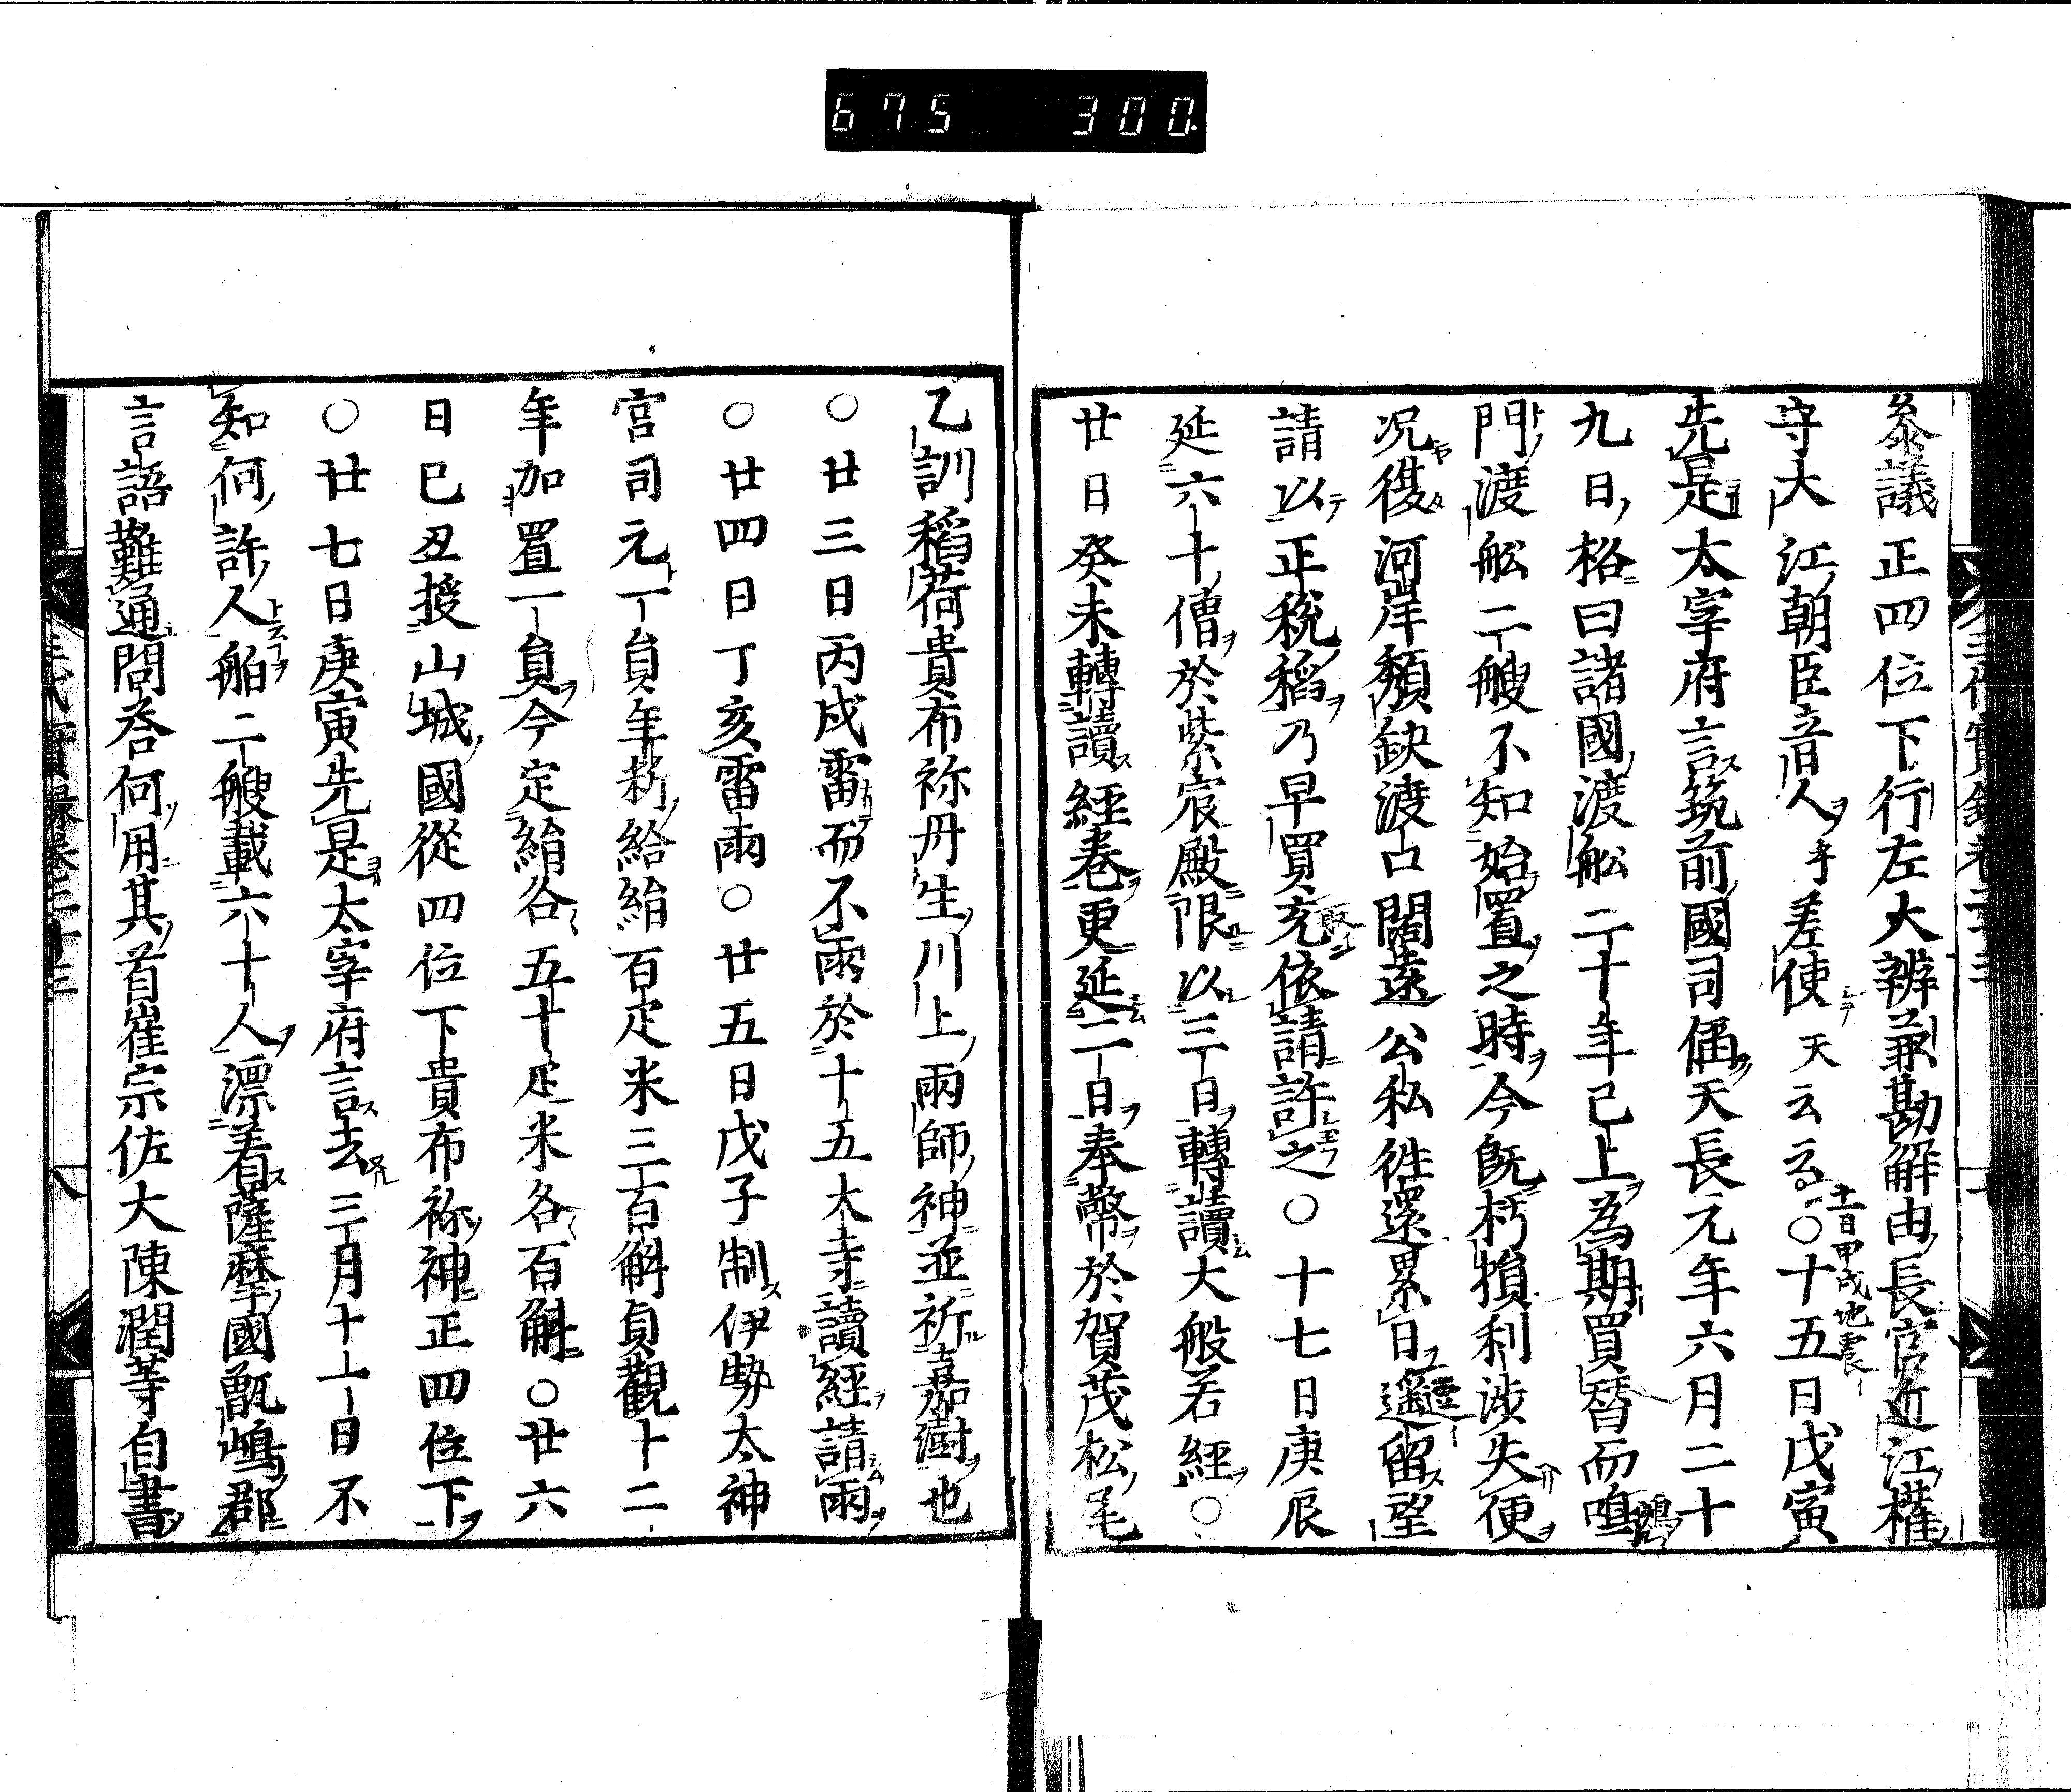 675 300.
叅議正四位下行左大辨兼勘解由長官近江權
守大江朝臣音人手差使天云云○十五日戊寅
十二日甲戌地震
先是太宰府言筑前國司偁天長元年六月二十
九日格曰諸國渡舩二十年已上爲期買替而鳴
門渡舩二艘不知始置之時今既朽損利涉失便
况復河岸頽缺渡口闊遠公私徃還累日遥留望
請以正税稻乃早買充依請許之○十七日庚辰
延六十僧於紫宸殿限以三日轉讀大般若經○
廿日癸未轉讀經卷更延二日奉幣於賀茂松尾
乙訓稻荷貴布祢丹生川上雨師神並祈嘉澍也
○廿三日丙戌雷而不雨於十五大寺讀經請雨
○廿四日丁亥雷雨○廿五日戊子制伊勢太神
宮司元一員年粮給絹百疋米三百斛貞觀十二
年加置一員今定絹各五十疋米各百斛○廿六
日巳丑授山城國從四位下貴布祢神正四位下
○廿七日庚寅先是太宰府言去三月十一日不
知何許人舶二艘載六十人漂着薩摩國甑嶋郡
言語難通問荅何用其首崔宗佐大陳潤等自書
三代實録卷二十三
八